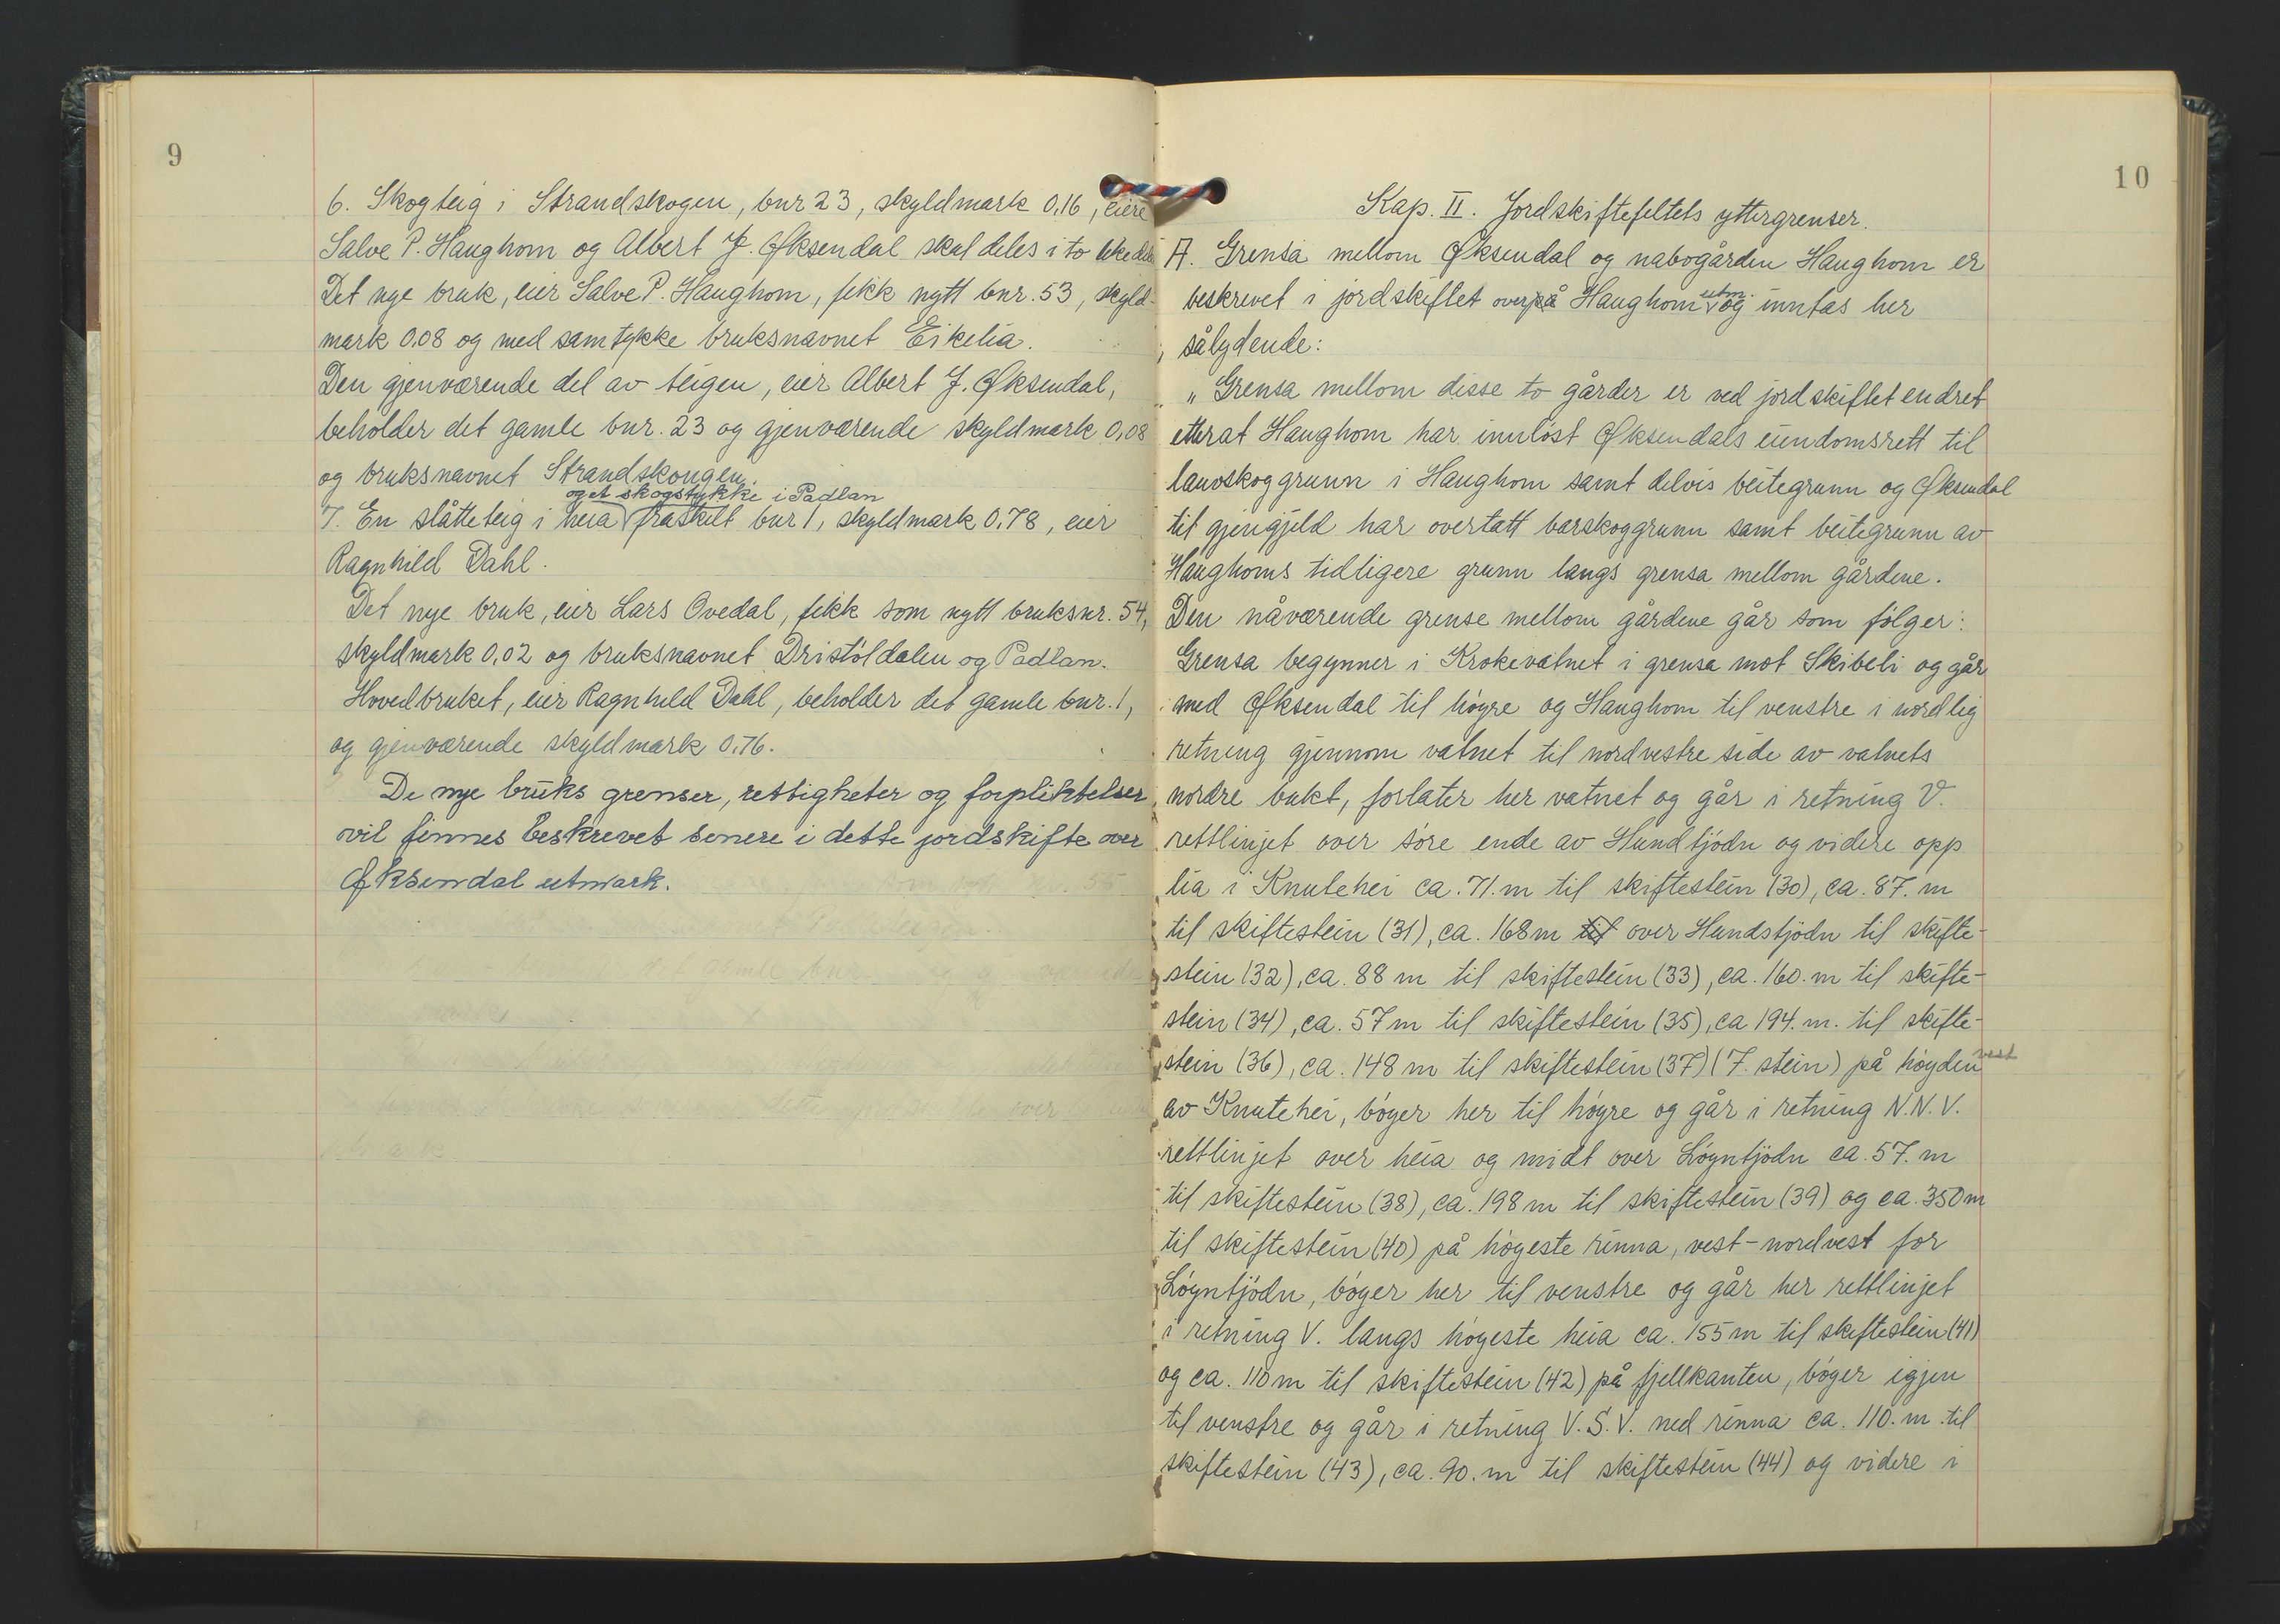 9
6. Skogteig i Strandskogen, bnr 23, skyldmark 0,16, eiere
Salve P. Haughom og Albert J. Øksendal skal deles i to like deler
Det nye bruk, eier Salve P. Haughom, fikk nytt bnr. 53, skyld-
mark 0,08 og med samtykke bruksnavnet Eikelia.
Den gjenværende del av teigen, eier Albert J. Øksendal,
beholder det gamle bnr. 23 og gjenværende skyldmark 0,08
og bruksnavnet Strandskongen.
og et skogstykke i Padlan
7. En slåtteteig i heia fraskilt bnr 1, skyldmark 0,78, eier
Ragnhild Dahl.
Det nye bruk, eier Lars Ovedal, fikk som nytt bruksnr. 54,
skyldmark 0,02 og bruksnavnet Dristöldalen og Padlan.
Hovedbruket, eier Ragnhild Dahl, beholder det gamle bnr. 1,
og gjenværende skyldmark 0,76.
De nye bruks grenser, rettigheter og forpliktelser
vil finnes beskrevet senere i dette jordskifte over
Øksendal utmark.
10
Kap. II. Jordskiftefeltets yttergrenser.
A. Grensa mellom Øksendal og nabogården Haughom er
beskrevet i jordskiftet over på Haughom utm. og inntas her
sålydende:
„Grensa mellom disse to gårder er ved jordskiftet endret
etterat Haughom har innlöst Øksendals eiendomsrett til
lauvskoggrunn i Haughom samt delvis beitegrunn og Øksendal
til gjengjeld har overtatt barskoggrunn samt beitegrunn av
Haughoms tidligere grunn langs grensa mellom gårdene.
Den nåværende grense mellom gårdene går som fölger:
Grensa begynner i Krokevatnet i grensa mot Skibeli og går
med Øksendal til högre og Haughom til venstre i nordlig
retning gjennom vatnet til nordvestre side av vatnets
nordre bukt, forlater her vatnet og går i retning V.
rettlinjet over söre ende av Hundtjödn og videre opp
lia i Knutehei ca. 71. m til skiftestein (30), ca. 87. m
til skiftestein (31), ca. 168 m til over Hundstjödn til skifte-
stein (32), ca. 88 m til skiftestein (33), ca. 160. m til skifte-
stein (34), ca. 57 m til skiftestein (35), ca 194. m. til skifte-
stein (36), ca. 148 m til skiftestein (37) (7. stein) på högden vest
av Knutehei, böger her til högre og går i retning N.N.V.
rettlinjet over heia og midt over Löyntjödn ca. 57. m
til skiftestein (38), ca. 198 m til skiftestein (39) og ca. 350 m
til skiftestein (40) på högeste rinna, vest-nordvest for
Löyntjödn, böger her til venstre og går her rettlinjet
i retning V. langs högeste heia ca. 155 m til skiftestein (41)
og ca. 110 m til skiftestein (42) på fjellkanten, böger igjen
til venstre og går i retning V.S.V. ned rinna ca. 110. m til
skiftestein (43), ca. 90. m til skiftestein (44) og videre i